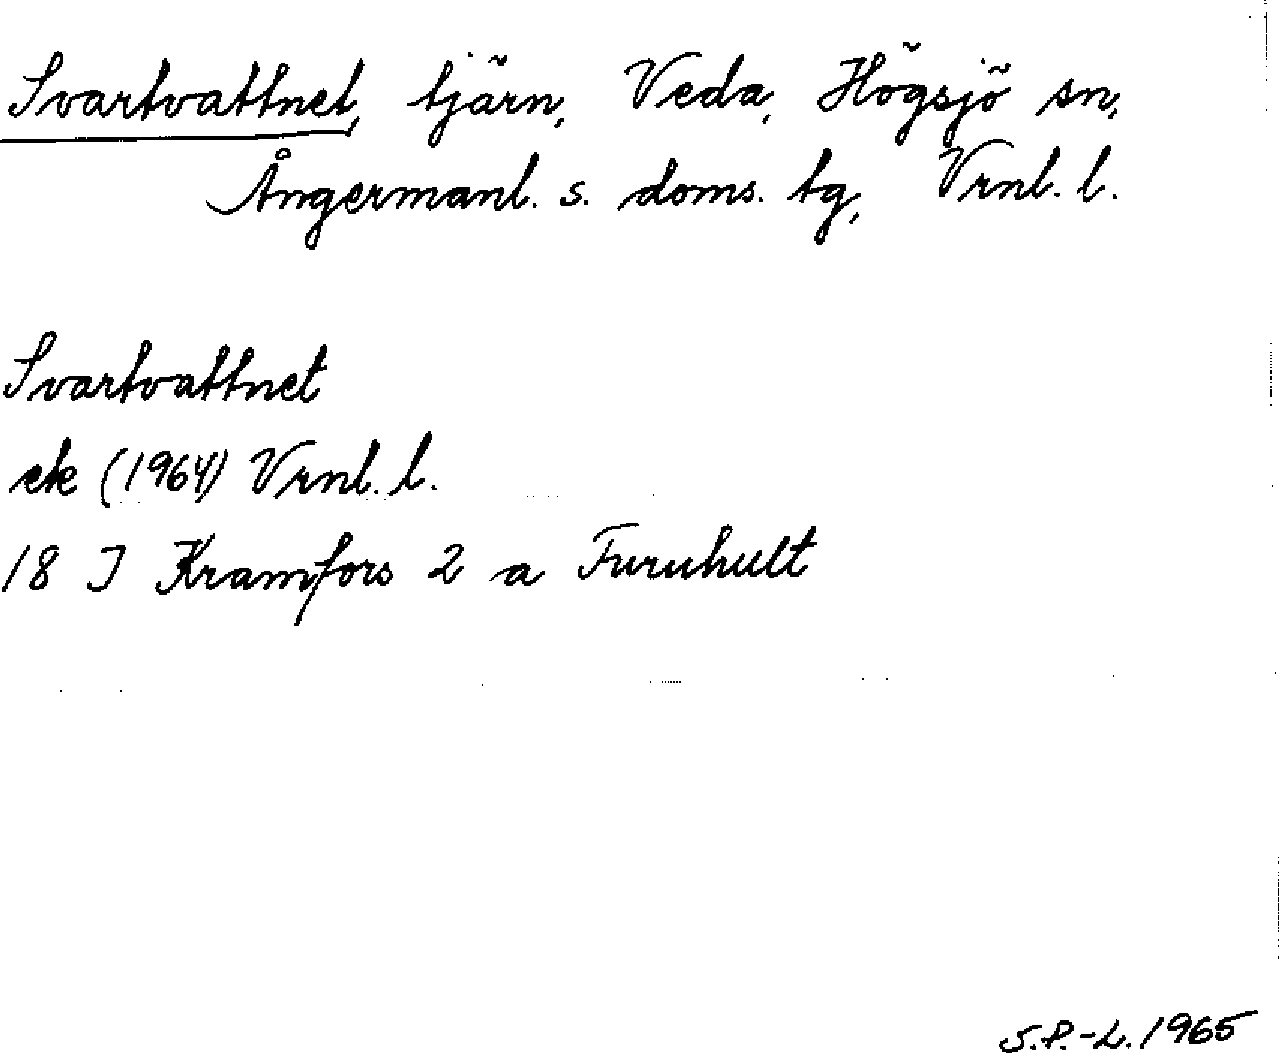 Svartvattnet, tjärn, Veda, Högsjö sn,
Ångermanl. s. doms. tg, Vrnl. l.
Svartvattnet
ek (1964) Vrnl. l.
18 I Kramfors 2 a Furuhult
S.P.-L. 1965